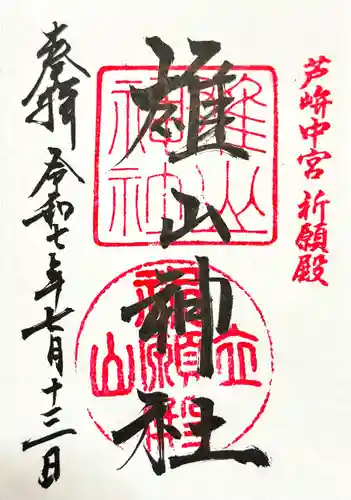 芦峅中宮祈願殿
雄山神社
奉拝
令和七年七月十三日
雄山神社
立山
祈願殿